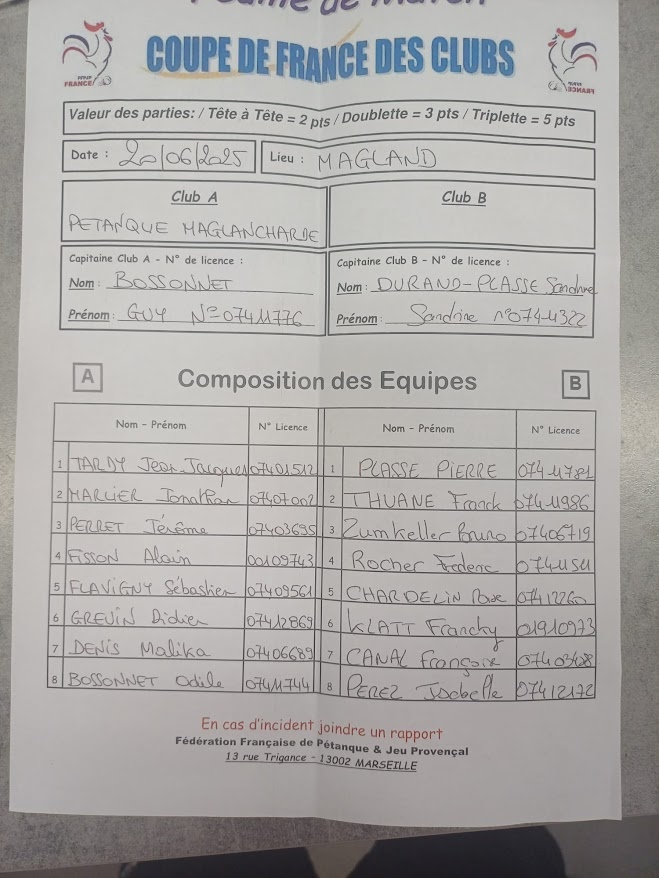 Feuille de Match
COUPE DE FRANCE DES CLUBS
FRANCE
FRANCE
Valeur des parties: / Tête à Tête = 2 pts / Doublette = 3 pts / Triplette = 5 pts
Date : 20/06/2025 Lieu : MAGLAND
Club A Club B
PETANQUE MAGLANCHARDE
Capitaine Club A - N° de licence : Capitaine Club B - N° de licence :
Nom : BOSSONNET Nom : DURAND-PLASSE Sandrine
Prénom : GUY N°07411776 Prénom : Sandrine n°07411322
A Composition des Equipes B
Nom - Prénom N° Licence Nom - Prénom N° Licence
1 TARDY Jean-Jacques 07401512 1 PLASSE PIERRE 07411781
2 MARLIER Jonathan 07407002 2 THUANE Franck 07411986
3 PERRET Jérôme 07403695 3 Zumkeller Bruno 07406719
4 FISSON Alain 00109743 4 Rocher Frederic
5 FLAVIGNY Sébastien 07409561 5 CHARDELIN 07412760
6 GREVIN Didier 07412869 6 KLATT Francky 01910973
7 DENIS Malika 07406689 7 CANAL Françoise
8 BOSSONNET Odile 07411744 8 PEREZ Isabelle 07412172
En cas d'incident joindre un rapport
Fédération Française de Pétanque & Jeu Provençal
13 rue Trigance - 13002 MARSEILLE